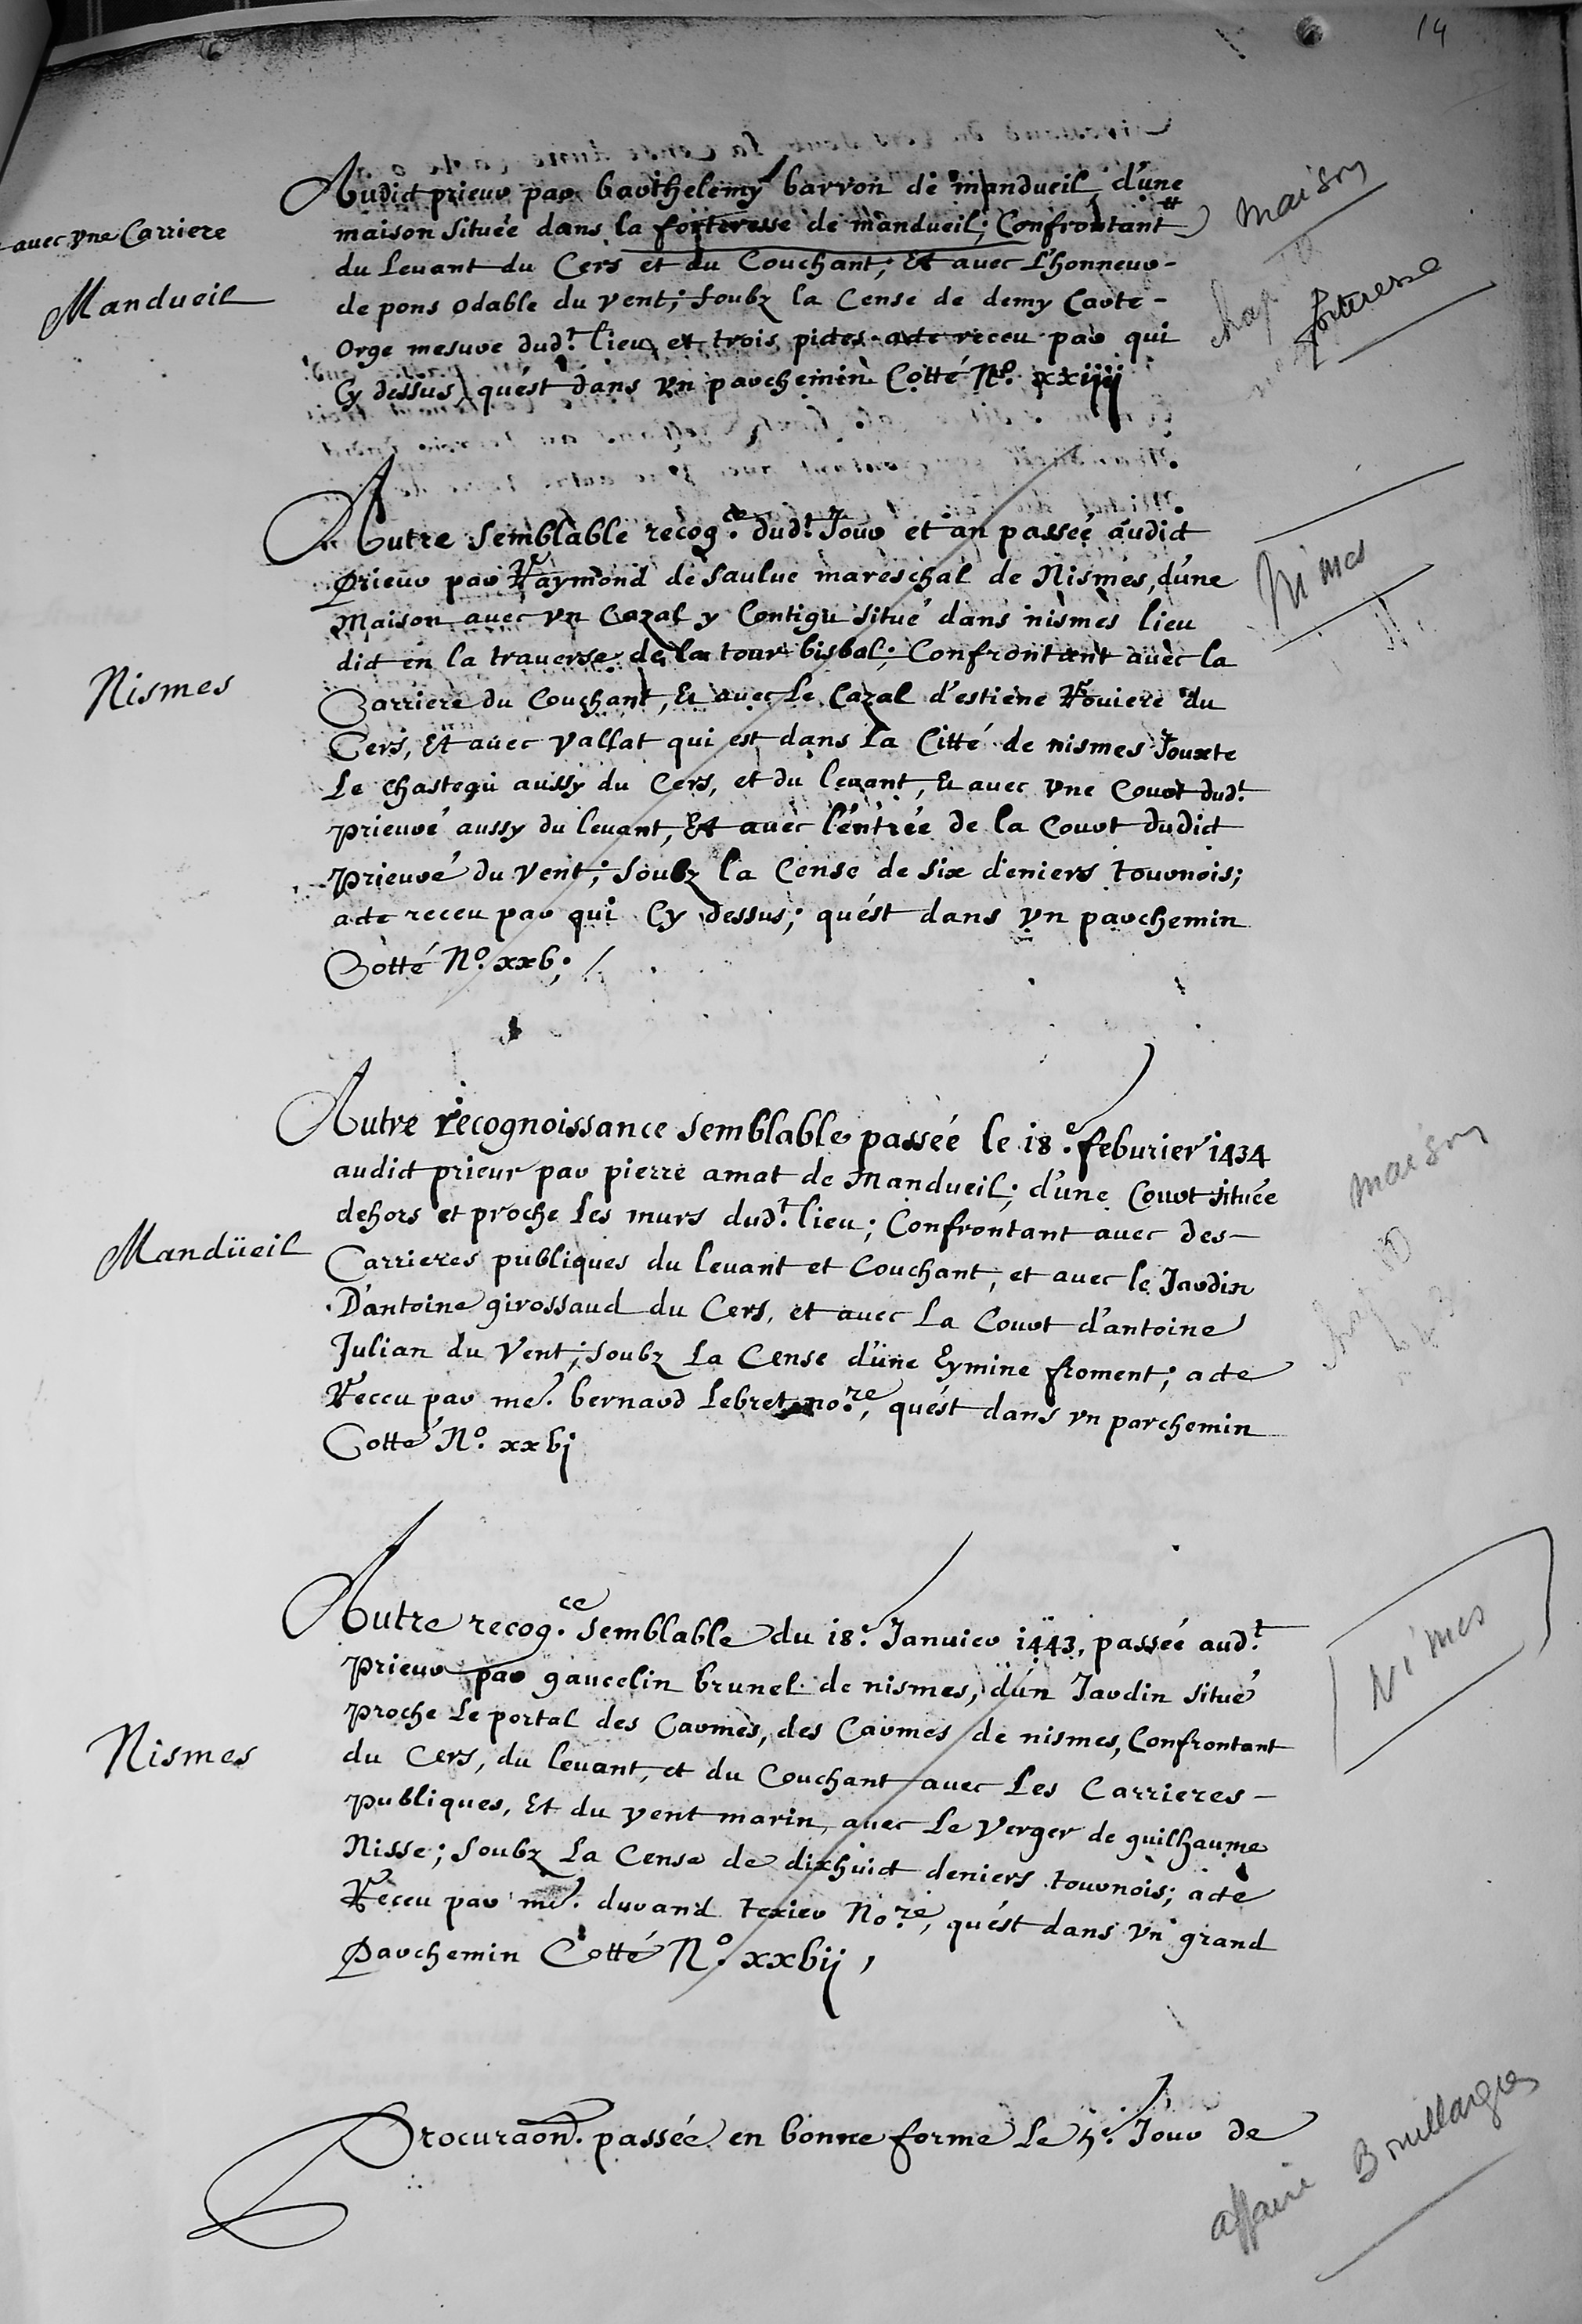 14
Audict prieur par barthelemy barron de mandueil d'une
maison située dans la forteresse de mandueil; Confrontant #
avec vne Carriere
du Leuant du Cers et du Couchant; Et avec L'honneur
Mandueil
de pons odable du vent; soubz la Cense de demy Carte
orge mesure dud.t lieu, et trois pictes acte receu par qui
Cy dessus, qu'est dans vn parchemin Cotté N.o xxiiij
maison
forteresse
Autre semblable recog.ce dud.t Jour et an passée audict
prieur par Raymond de saulue mareschal de Nismes, d'une
Maison avec vn Cazal y Contigu situé dans nismes lieu
dict en la trauerse de la tour bisbal; Confrontant auec la
Nismes
Carriere du Couchant, Et auec Le Cazal d'estiene Rouiere du
Cers, Et auec vallat qui est dans La Citté de nismes Jouxte
Le chasteau aussy du Cers, et du leuant, Et avec vne Court dud.t
prieuré aussy du leuant, Et avec l'entrée de la Court dudict
prieuré du vent; soubz la Cense de six deniers tournois;
acte receu par qui Cy dessus; qu'est dans vn parchemin
Cotté N.o xxb;
Nimes
Autre recognoissance semblable passée le 18.e feburier 1434
audict prieur par pierre amat de Mandueil; d'une Court située
dehors et proche Les murs dud.t lieu; Confrontant auec des
Mandüeil
Carrieres publiques du leuant et Couchant, et avec le Jardin
D'antoine girossaud du Cers, et auec La Court d'antoine
Julian du Vent; soubz La Cense d'une Eymine froment; acte
Receu par me. bernard Lebret no.re, qu'est dans vn parchemin
Cotté N.o xxbj
maison
Autre recog.ce semblable du 18.e Januier 1443, passée aud.t
prieur par gaucelin brunel de nismes, d'un Jardin situé
proche Le portal des Carmes, des Carmes de nismes, Confrontant
Nismes
du Cers, du leuant, et du Couchant auec Les Carrieres
publiques, Et du vent marin, auec Le Verger de guilhaume
Nisse; soubz La Cense de dixhuict deniers tournois; acte
Receu par me. durand texier No.re, qu'est dans vn grand
parchemin Cotté N.o xxbij,
Nimes
Procuraon. passée en bonne forme Le 5.e Jour de
affaire Bouillargues